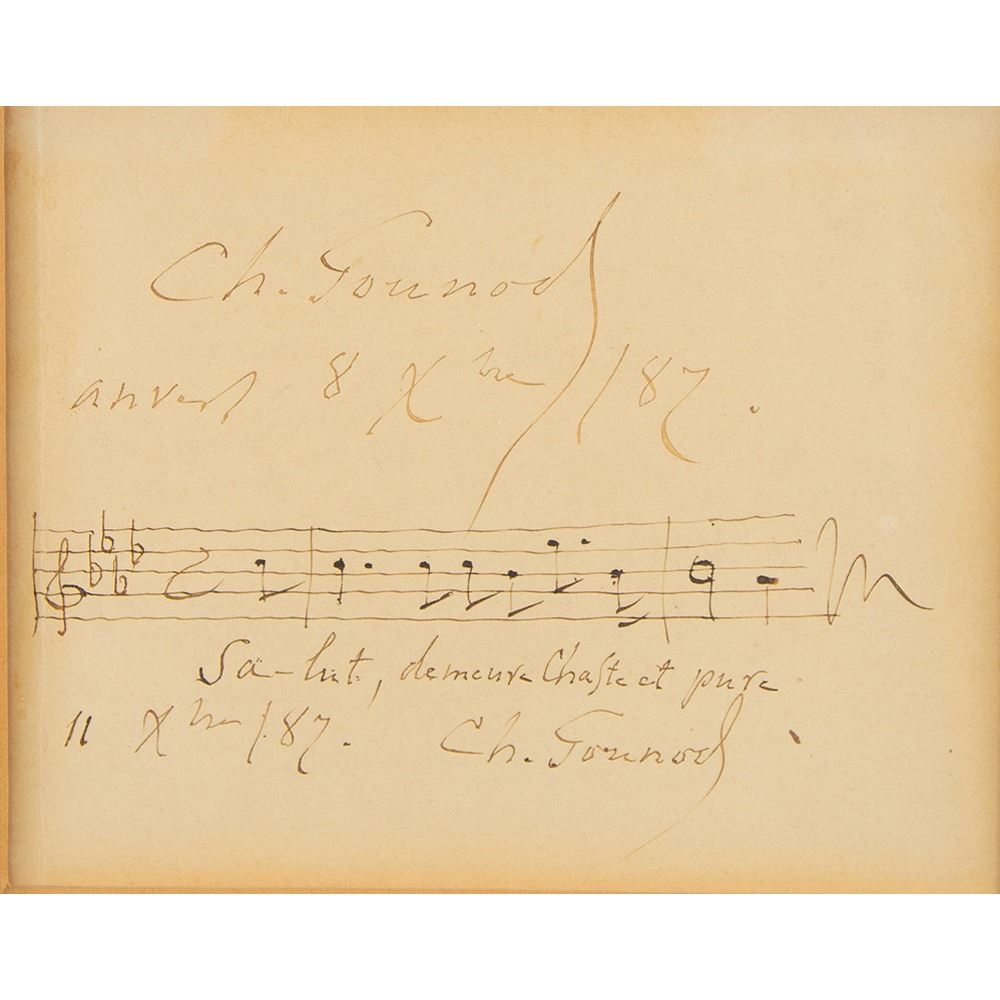 Ch. Gounod
anvers 8 Xbre /87.
Sa-lut, demeure Chaste et pure
11 Xbre /.87. Ch. Gounod